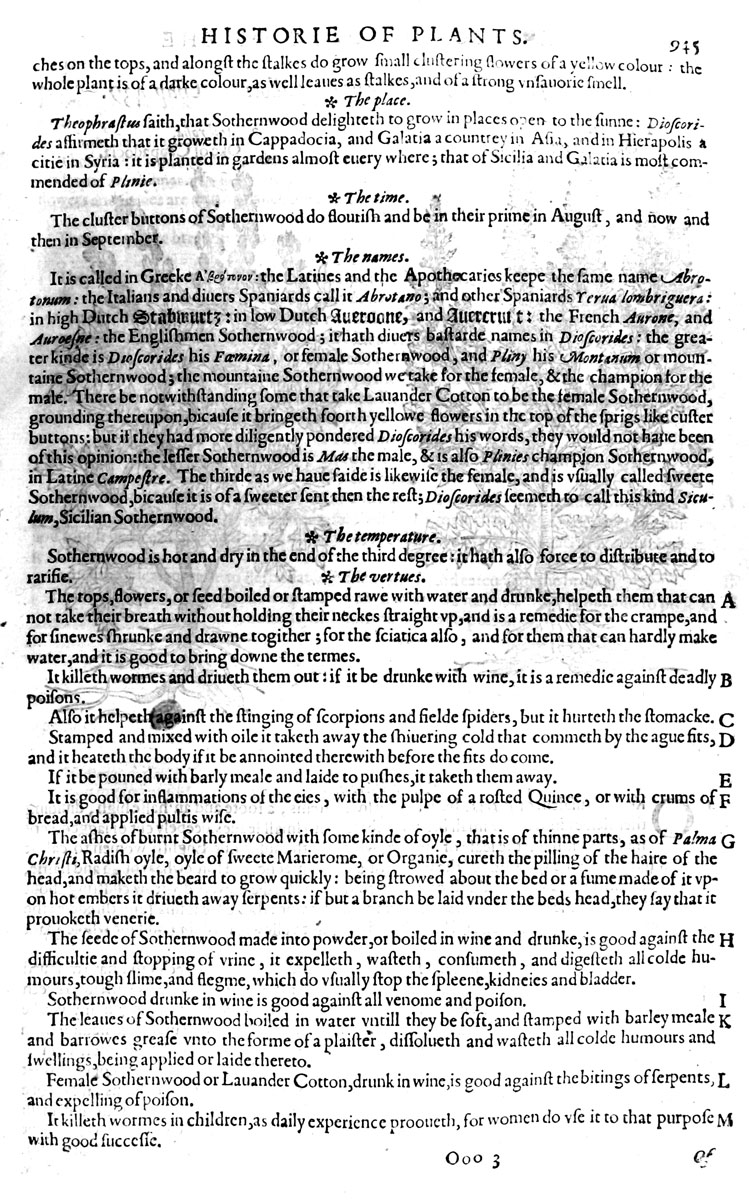 HISTORIE OF PLANTS. 945
ches on the tops, and alongſt the ſtalkes do grow ſmall cluſtering flowers of a yellow colour : the
whole plant is of a darke colour, as well leaues as ſtalkes, and of a ſtrong vnſauorie ſmell.
❧ The place.
Theophraſtus ſaith, that Sothernwood delighteth to grow in places open to the ſunne: Dioſcori-
des affirmeth that it groweth in Cappadocia, and Galatia a countrey in Aſia, and in Hierapolis a
citie in Syria : it is planted in gardens almoſt euery where; that of Sicilia and Galatia is moſt com-
mended of Plinie.
❧ The time.
The cluſter buttons of Sothernwood do flouriſh and be in their prime in Auguſt, and now and
then in September.
❧ The names.
It is called in Greeke : the Latines and the Apothecaries keepe the ſame name Abro-
tonum : the Italians and diuers Spaniards call it Abrotano; and other Spaniards Yerua lombriguera:
in high Dutch Stabwurtz: in low Dutch Aueroone, and Auercruit: the French Aurone, and
Auroeſne: the Engliſhmen Sothernwood; it hath diuers baſtarde names in Dioſcorides: the grea-
ter kinde is Dioſcorides his Fœmina, or female Sothernwood, and Pliny his Montanum or moun-
taine Sothernwood; the mountaine Sothernwood we take for the female, & the champion for the
male. There be notwithſtanding ſome that take Lauander Cotton to be the female Sothernwood,
grounding thereupon, bicauſe it bringeth foorth yellowe flowers in the top of the ſprigs like cuſter
buttons: but if they had more diligently pondered Dioſcorides his words, they would not haue been
of this opinion: the leſſer Sothernwood is Mas the male, & is alſo Plinies champion Sothernwood,
in Latine Campeſtre. The thirde as we haue ſaide is likewiſe the female, and is vſually called ſweete
Sothernwood, bicauſe it is of a ſweeter ſent then the reſt; Dioſcorides ſeemeth to call this kind Sicu-
lum, Sicilian Sothernwood.
❧ The temperature.
Sothernwood is hot and dry in the end of the third degree: it hath alſo force to diſtribute and to
rarifie. ❧ The vertues.
The tops, flowers, or ſeed boiled or ſtamped rawe with water and drunke, helpeth them that can A
not take their breath without holding their neckes ſtraight vp, and is a remedie for the crampe, and
for ſinewes ſhrunke and drawne togither; for the ſciatica alſo, and for them that can hardly make
water, and it is good to bring downe the termes.
It killeth wormes and driueth them out: if it be drunke with wine, it is a remedie againſt deadly B
poiſons.
Alſo it helpeth againſt the ſtinging of ſcorpions and fielde ſpiders, but it hurteth the ſtomacke. C
Stamped and mixed with oile it taketh away the ſhiuering cold that commeth by the ague fits, D
and it heateth the body if it be annointed therewith before the fits do come.
If it be pouned with barly meale and laide to puſhes, it taketh them away. E
It is good for inflammations of the eies, with the pulpe of a roſted Quince, or with crums of F
bread, and applied pultis wiſe.
The aſhes of burnt Sothernwood with ſome kinde of oyle, that is of thinne parts, as of Palma G
Chriſti, Radiſh oyle, oyle of ſweete Marierome, or Organie, cureth the pilling of the haire of the
head, and maketh the beard to grow quickly: being ſtrowed about the bed or a fume made of it vp-
on hot embers it driueth away ſerpents: if but a branch be laid vnder the beds head, they ſay that it
prouoketh venerie.
The ſeede of Sothernwood made into powder, or boiled in wine and drunke, is good againſt the H
difficultie and ſtopping of vrine, it expelleth, waſteth, conſumeth, and digeſteth all colde hu-
mours, tough ſlime, and flegme, which do vſually ſtop the ſpleene, kidneies and bladder.
Sothernwood drunke in wine is good againſt all venome and poiſon. I
The leaues of Sothernwood boiled in water vntill they be ſoft, and ſtamped with barley meale K
and barrowes greaſe vnto the forme of a plaiſter, diſſolueth and waſteth all colde humours and
ſwellings, being applied or laide thereto.
Female Sothernwood or Lauander Cotton, drunk in wine, is good againſt the bitings of ſerpents, L
and expelling of poiſon.
It killeth wormes in children, as daily experience prooueth, for women do vſe it to that purpoſe M
with good ſucceſſe.
Ooo 3 Of